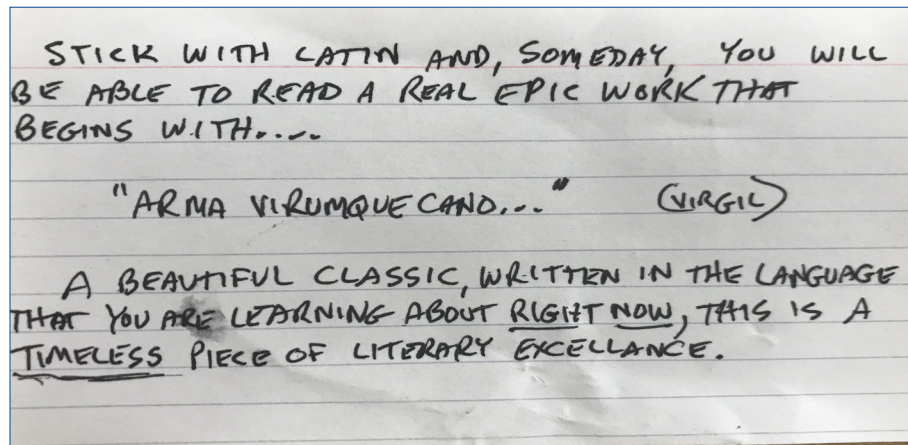 STICK WITH LATIN AND, SOMEDAY, YOU WILL
BE ABLE TO READ A REAL EPIC WORK THAT
BEGINS WITH.....
"ARMA VIRUMQUE CANO..." (VIRGIL)
A BEAUTIFUL CLASSIC, WRITTEN IN THE LANGUAGE
THAT YOU ARE LEARNING ABOUT RIGHT NOW, THIS IS A
TIMELESS PIECE OF LITERARY EXCELLANCE.